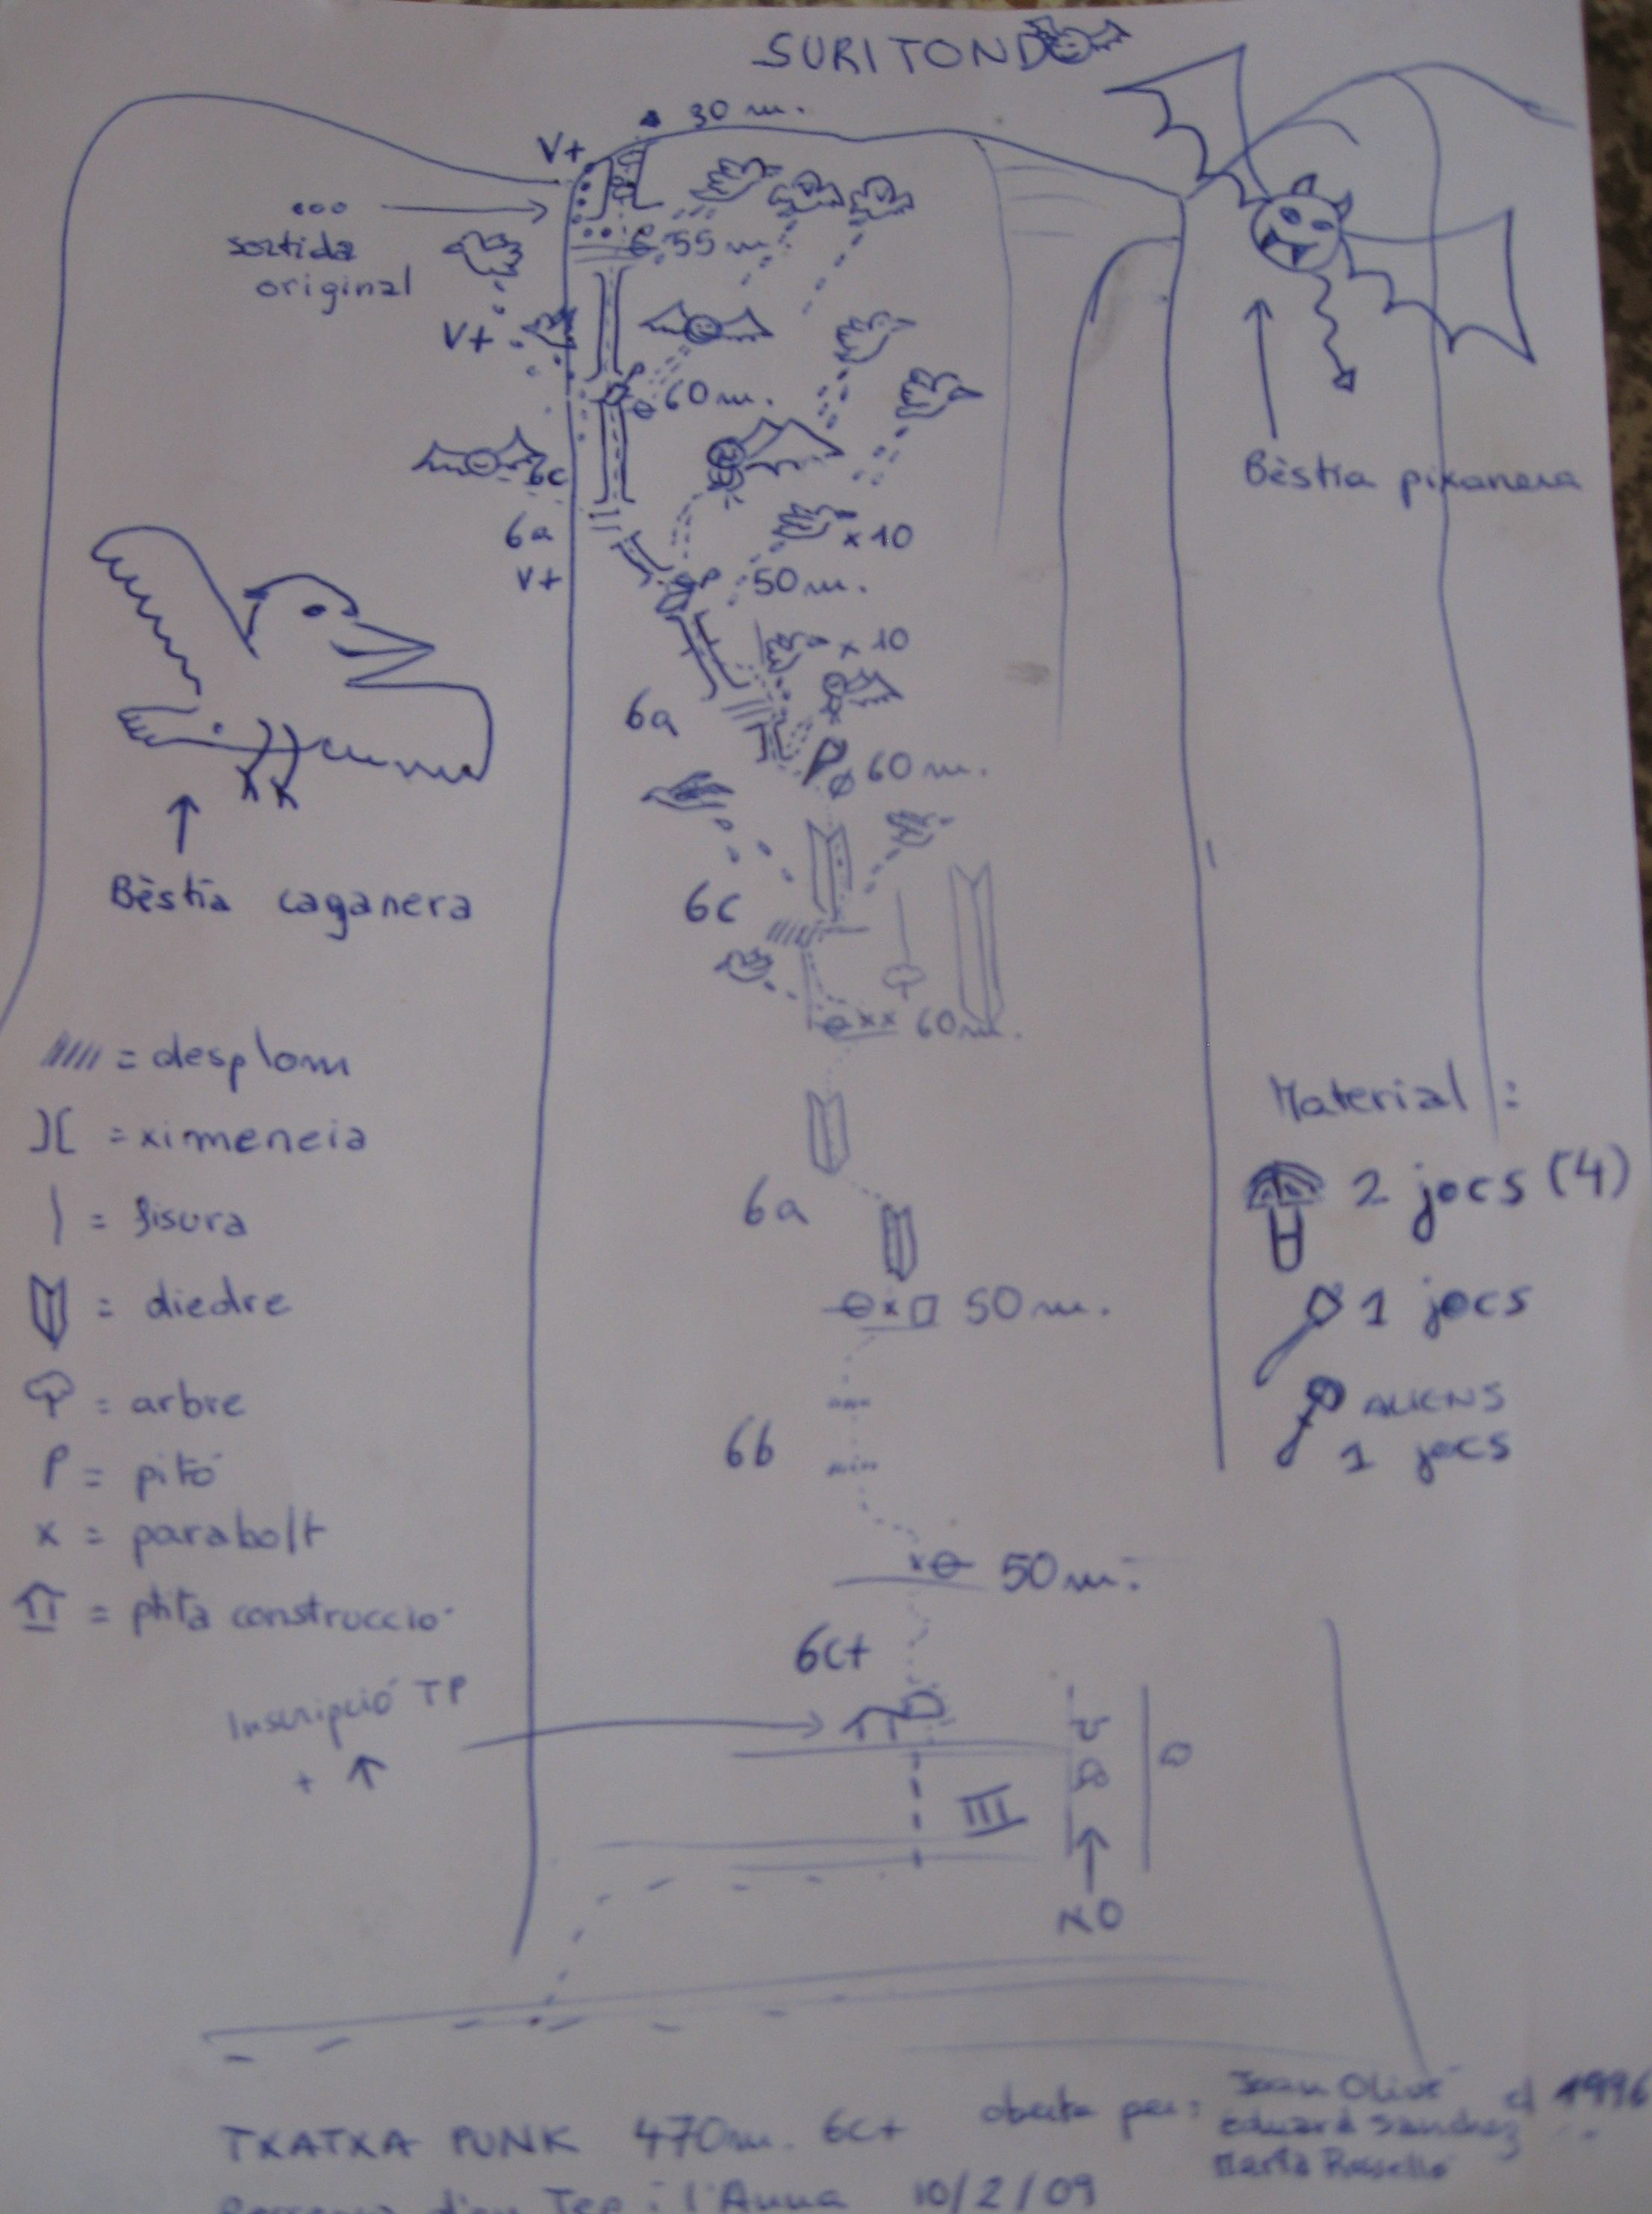 SURITONDO
30 m.
V+
sortida
original
55 m.
V+
60 m.
6c
6a
V+
Bèstia pixanera
x 10
50 m.
x 10
6a
60 m.
Bèstia caganera
6c
xx 60 m.
= desplom
= ximeneia
= fisura
= diedre
= arbre
P = pitó
x = parabolt
= ptita construcció
Material :
2 jocs (4)
1 jocs
ALIENS
1 jocs
6a
x 50 m.
6b
x 50 m.
6c+
Inscripció TP
+ ↑
III
NO
TXATXA PUNK 470 m. 6c+ oberta per: Joan Olivé el 1996
Eduard Sandrez
Marta Rosselló
Tep i l'Anna 10/2/09